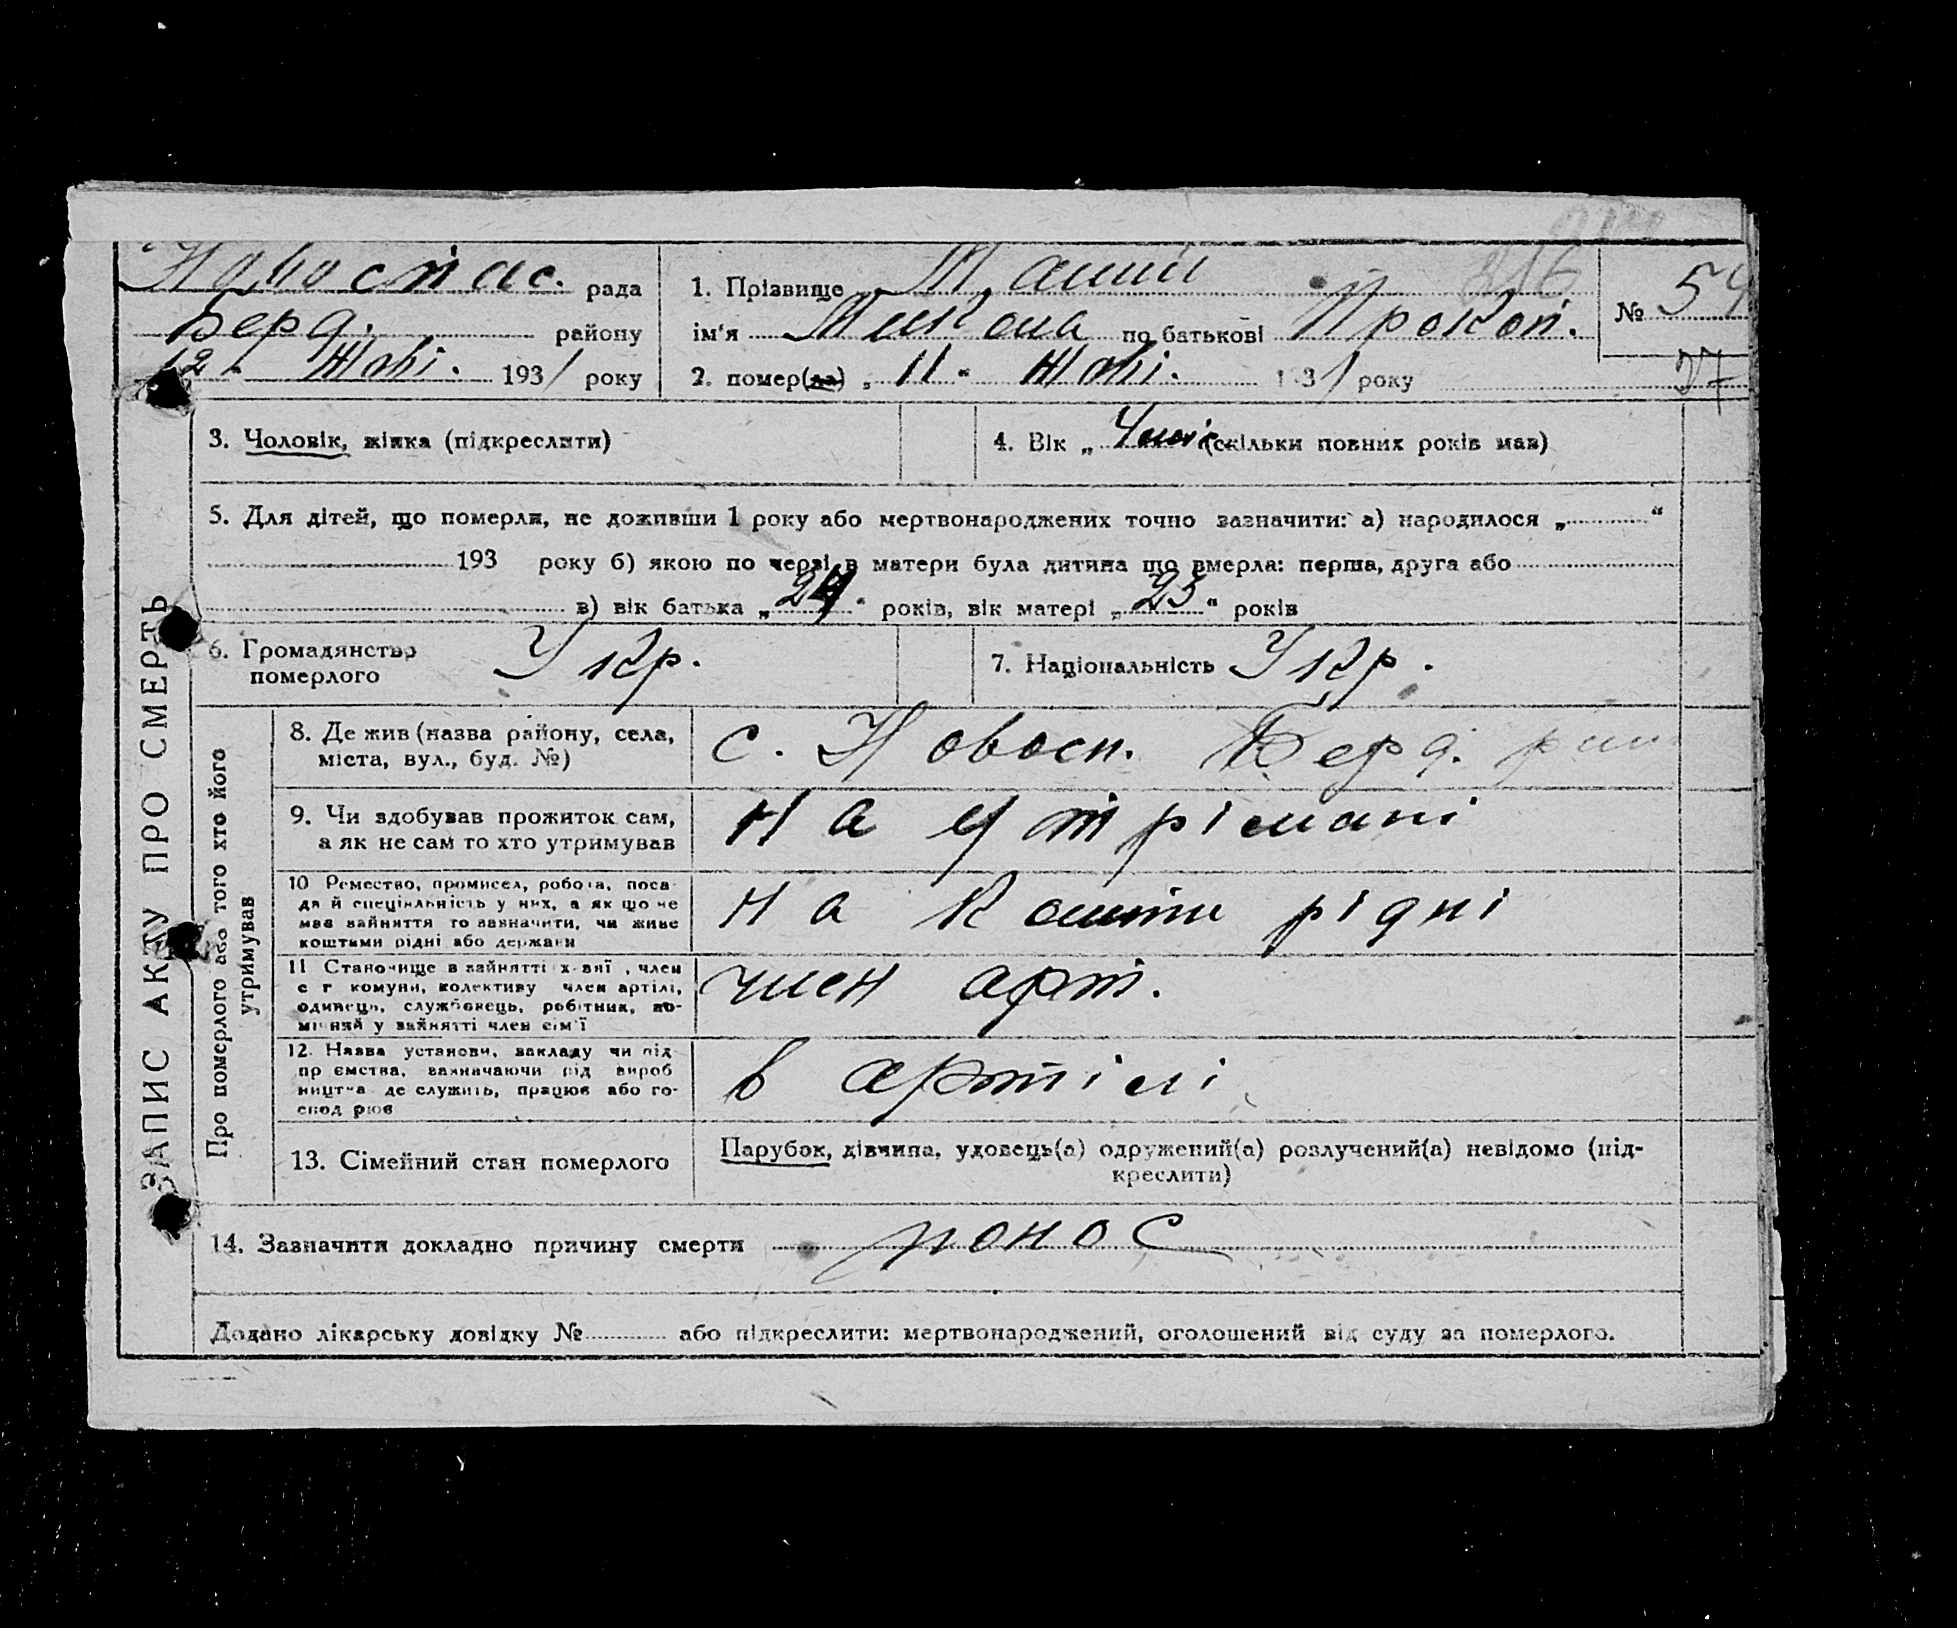 Новоспас. рада
Берд. району
12. Жові. 1931 року
1. Прізвище
ім'я Микола по батькові Прокоп.
2. помер(ла) „11" Жові. 1931 року
№ 54
27
3. Чоловік, жінка (підкреслити)
4. Вік „ 4 (скільки повних років мав)
5. Для дітей, що померли, не доживши 1 року або мертвонароджених точно зазначити: а) народилося „ "
193 року б) якою по черзі в матери була дитина що вмерла: перша, друга або
в) вік батька „24" років, вік матері „23" років
6. Громадянство
померлого
Укр.
7. Національність Укр.
ЗАПИС АКТУ ПРО СМЕРТЬ
Про померлого або того хто його
утримував
8. Де жив (назва району, села,
міста, вул., буд. №)
с. Новосп. Берд.
9. Чи здобував прожиток сам,
а як не сам то хто утримував
на утрімані
10 Ремество, промисел, робота, поса-
да й спеціяльність у них, а як що не
мав зайняття то зазначити, чи живе
коштами рідні або держави
на кошти рідні
11 Становище в зайнятті член
с г комуни, колективу член артілі,
одинець, службовець, робітник, по-
мічний у зайнятті член сім'ї
член арт.
12. Назва установи, закладу чи під
пр ємства, зазначаючи рід вироб
ництва де служить, працює або го-
спод рює
в артілі
13. Сімейний стан померлого
Парубок, дівчина, удовець(а) одружений(а) розлучений(а) невідомо (під-
креслити)
14. Зазначити докладно причину смерти понос
Додано лікарську довідку № або підкреслити: мертвонароджений, оголошений від суду за померлого.